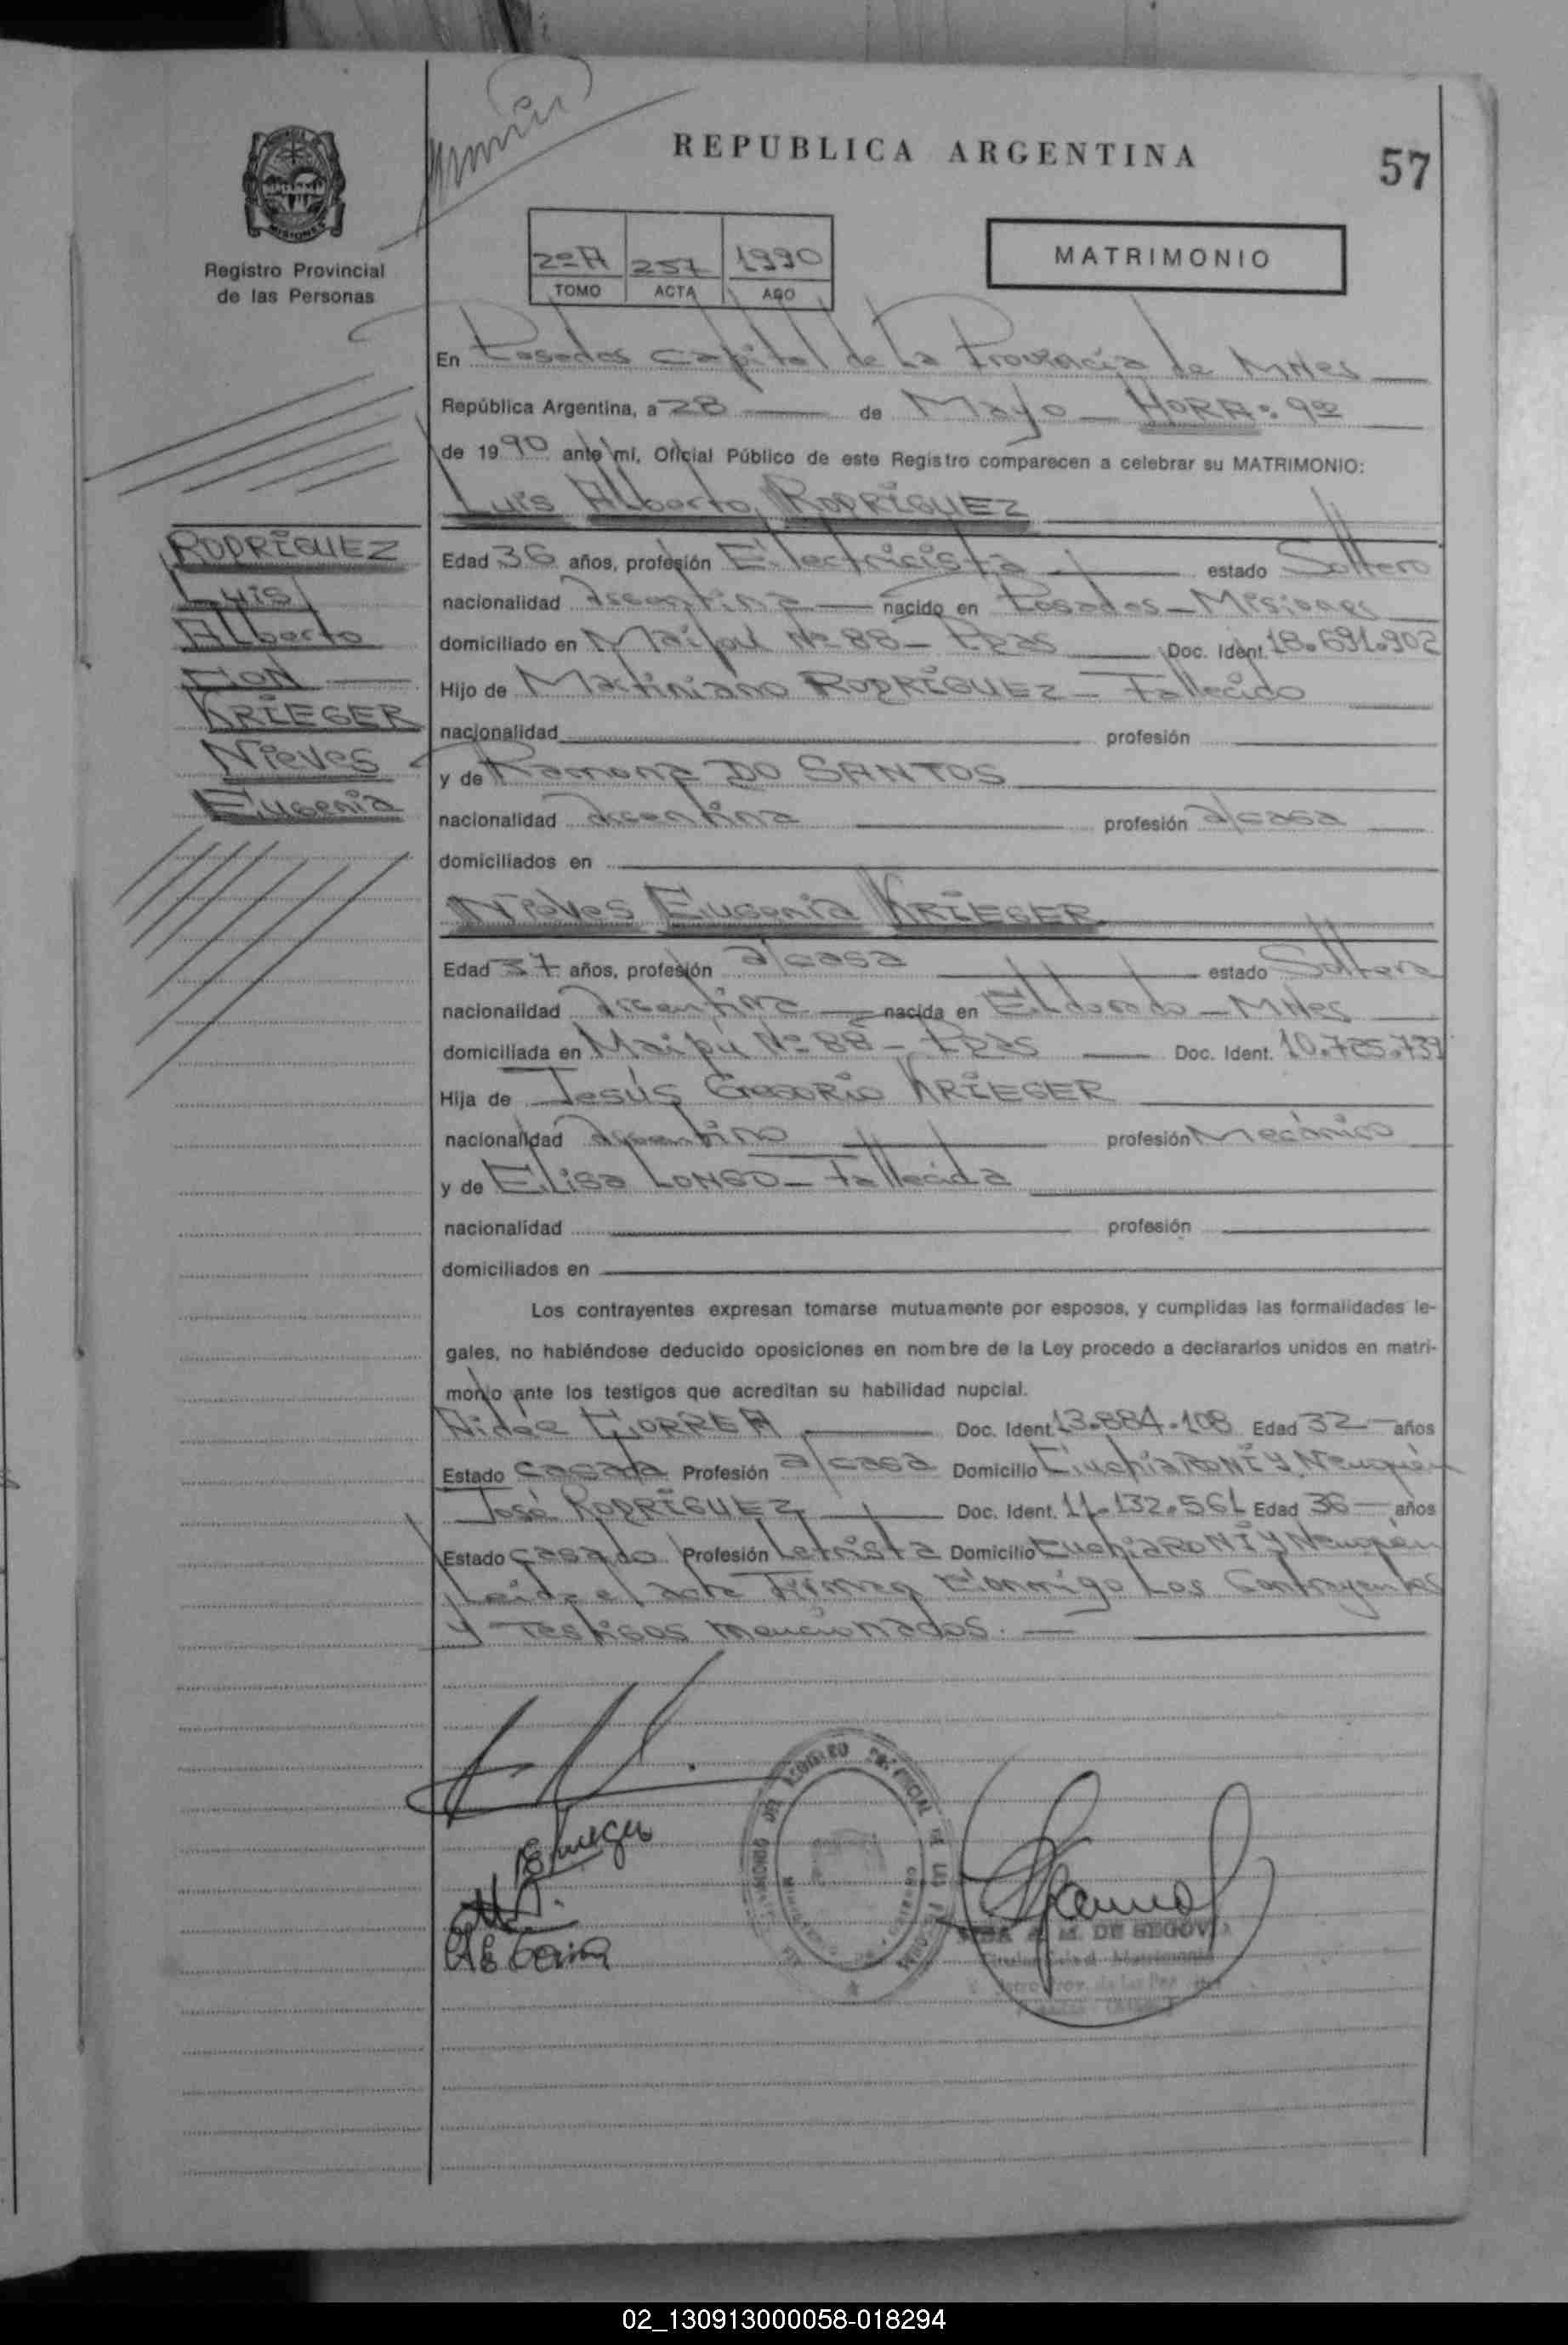 REPUBLICA ARGENTINA
57
MISIONES
Registro Provincial
de las Personas
2º A 257 1990
TOMO ACTA AÑO
MATRIMONIO
En Posadas Capital de La Provincia de Mnes
República Argentina, a 28 de Mayo HORA: 9
de 1990 ante mí, Oficial Público de este Registro comparecen a celebrar su MATRIMONIO:
Luis Alberto RODRIGUEZ
RODRIGUEZ
Luis
Alberto
CON
KRIEGER
Nieves
Eugenia
Edad 36 años, profesión Electricista estado Soltero
nacionalidad Argentina nacido en Posadas - Misiones
domiciliado en Maipu Nº 88 - Pdas Doc. Ident. 18.691.902
Hijo de Martiniano RODRIGUEZ - Fallecido
nacionalidad profesión
y de Ramona DO SANTOS
nacionalidad Argentina profesión a/casa
domiciliados en
Nieves Eugenia KRIEGER
Edad 37 años, profesión a/casa estado Soltera
nacionalidad Argentina nacida en Eldorado - Mnes
domiciliada en Maipú Nº 88 - Pdas Doc. Ident. 10.785.739
Hija de Jesús Gregorio KRIEGER
nacionalidad Argentino profesión Mecánico
y de Elisa LONGO - Fallecida
nacionalidad profesión
domiciliados en
Los contrayentes expresan tomarse mutuamente por esposos, y cumplidas las formalidades le-
gales, no habiéndose deducido oposiciones en nombre de la Ley procedo a declararlos unidos en matri-
monio ante los testigos que acreditan su habilidad nupcial.
Aidée CORREA Doc. Ident. 13.884.108 Edad 32 años
Estado Casada Profesión a/casa Domicilio y Neuquén
José RODRIGUEZ Doc. Ident. 11.132.561 Edad 36 años
Estado Casado Profesión Letrista Domicilio y Neuquén
Leida el acta Firman Conmigo Los Contrayentes
y Testigos mencionados.
DE SEGOVIA
02_130913000058-018294